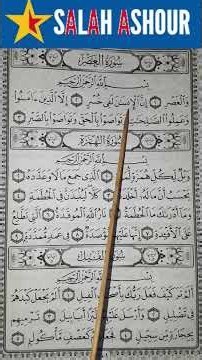 SALAH ASHOUR
سُورَةُ الْعَصْرِ
بِسْمِ اللَّهِ الرَّحْمَٰنِ الرَّحِيمِ
وَالْعَصْرِ ١ إِنَّ الْإِنسَانَ لَفِي خُسْرٍ ٢ إِلَّا الَّذِينَ ءَامَنُوا
وَعَمِلُوا الصَّالِحَاتِ وَتَوَاصَوْا بِالْحَقِّ وَتَوَاصَوْا بِالصَّبْرِ ٣
سُورَةُ الْهُمَزَةِ
بِسْمِ اللَّهِ الرَّحْمَٰنِ الرَّحِيمِ
وَيْلٌ لِّكُلِّ هُمَزَةٍ لُّمَزَةٍ ١ الَّذِي جَمَعَ مَالًا وَعَدَّدَهُ ٢
يَحْسَبُ أَنَّ مَالَهُ أَخْلَدَهُ ٣ كَلَّا لَيُنبَذَنَّ فِي الْحُطَمَةِ ٤
وَمَا أَدْرَاكَ مَا الْحُطَمَةُ ٥ نَارُ اللَّهِ الْمُوقَدَةُ ٦ الَّتِي تَطَّلِعُ
عَلَى الْأَفْئِدَةِ ٧ إِنَّهَا عَلَيْهِم مُّؤْصَدَةٌ ٨ فِي عَمَدٍ مُّمَدَّدَةٍ ٩
سُورَةُ الْفِيلِ
بِسْمِ اللَّهِ الرَّحْمَٰنِ الرَّحِيمِ
أَلَمْ تَرَ كَيْفَ فَعَلَ رَبُّكَ بِأَصْحَابِ الْفِيلِ ١ أَلَمْ يَجْعَلْ كَيْدَهُمْ
فِي تَضْلِيلٍ ٢ وَأَرْسَلَ عَلَيْهِمْ طَيْرًا أَبَابِيلَ ٣ تَرْمِيهِم
بِحِجَارَةٍ مِّن سِجِّيلٍ ٤ فَجَعَلَهُمْ كَعَصْفٍ مَّأْكُولٍ ٥